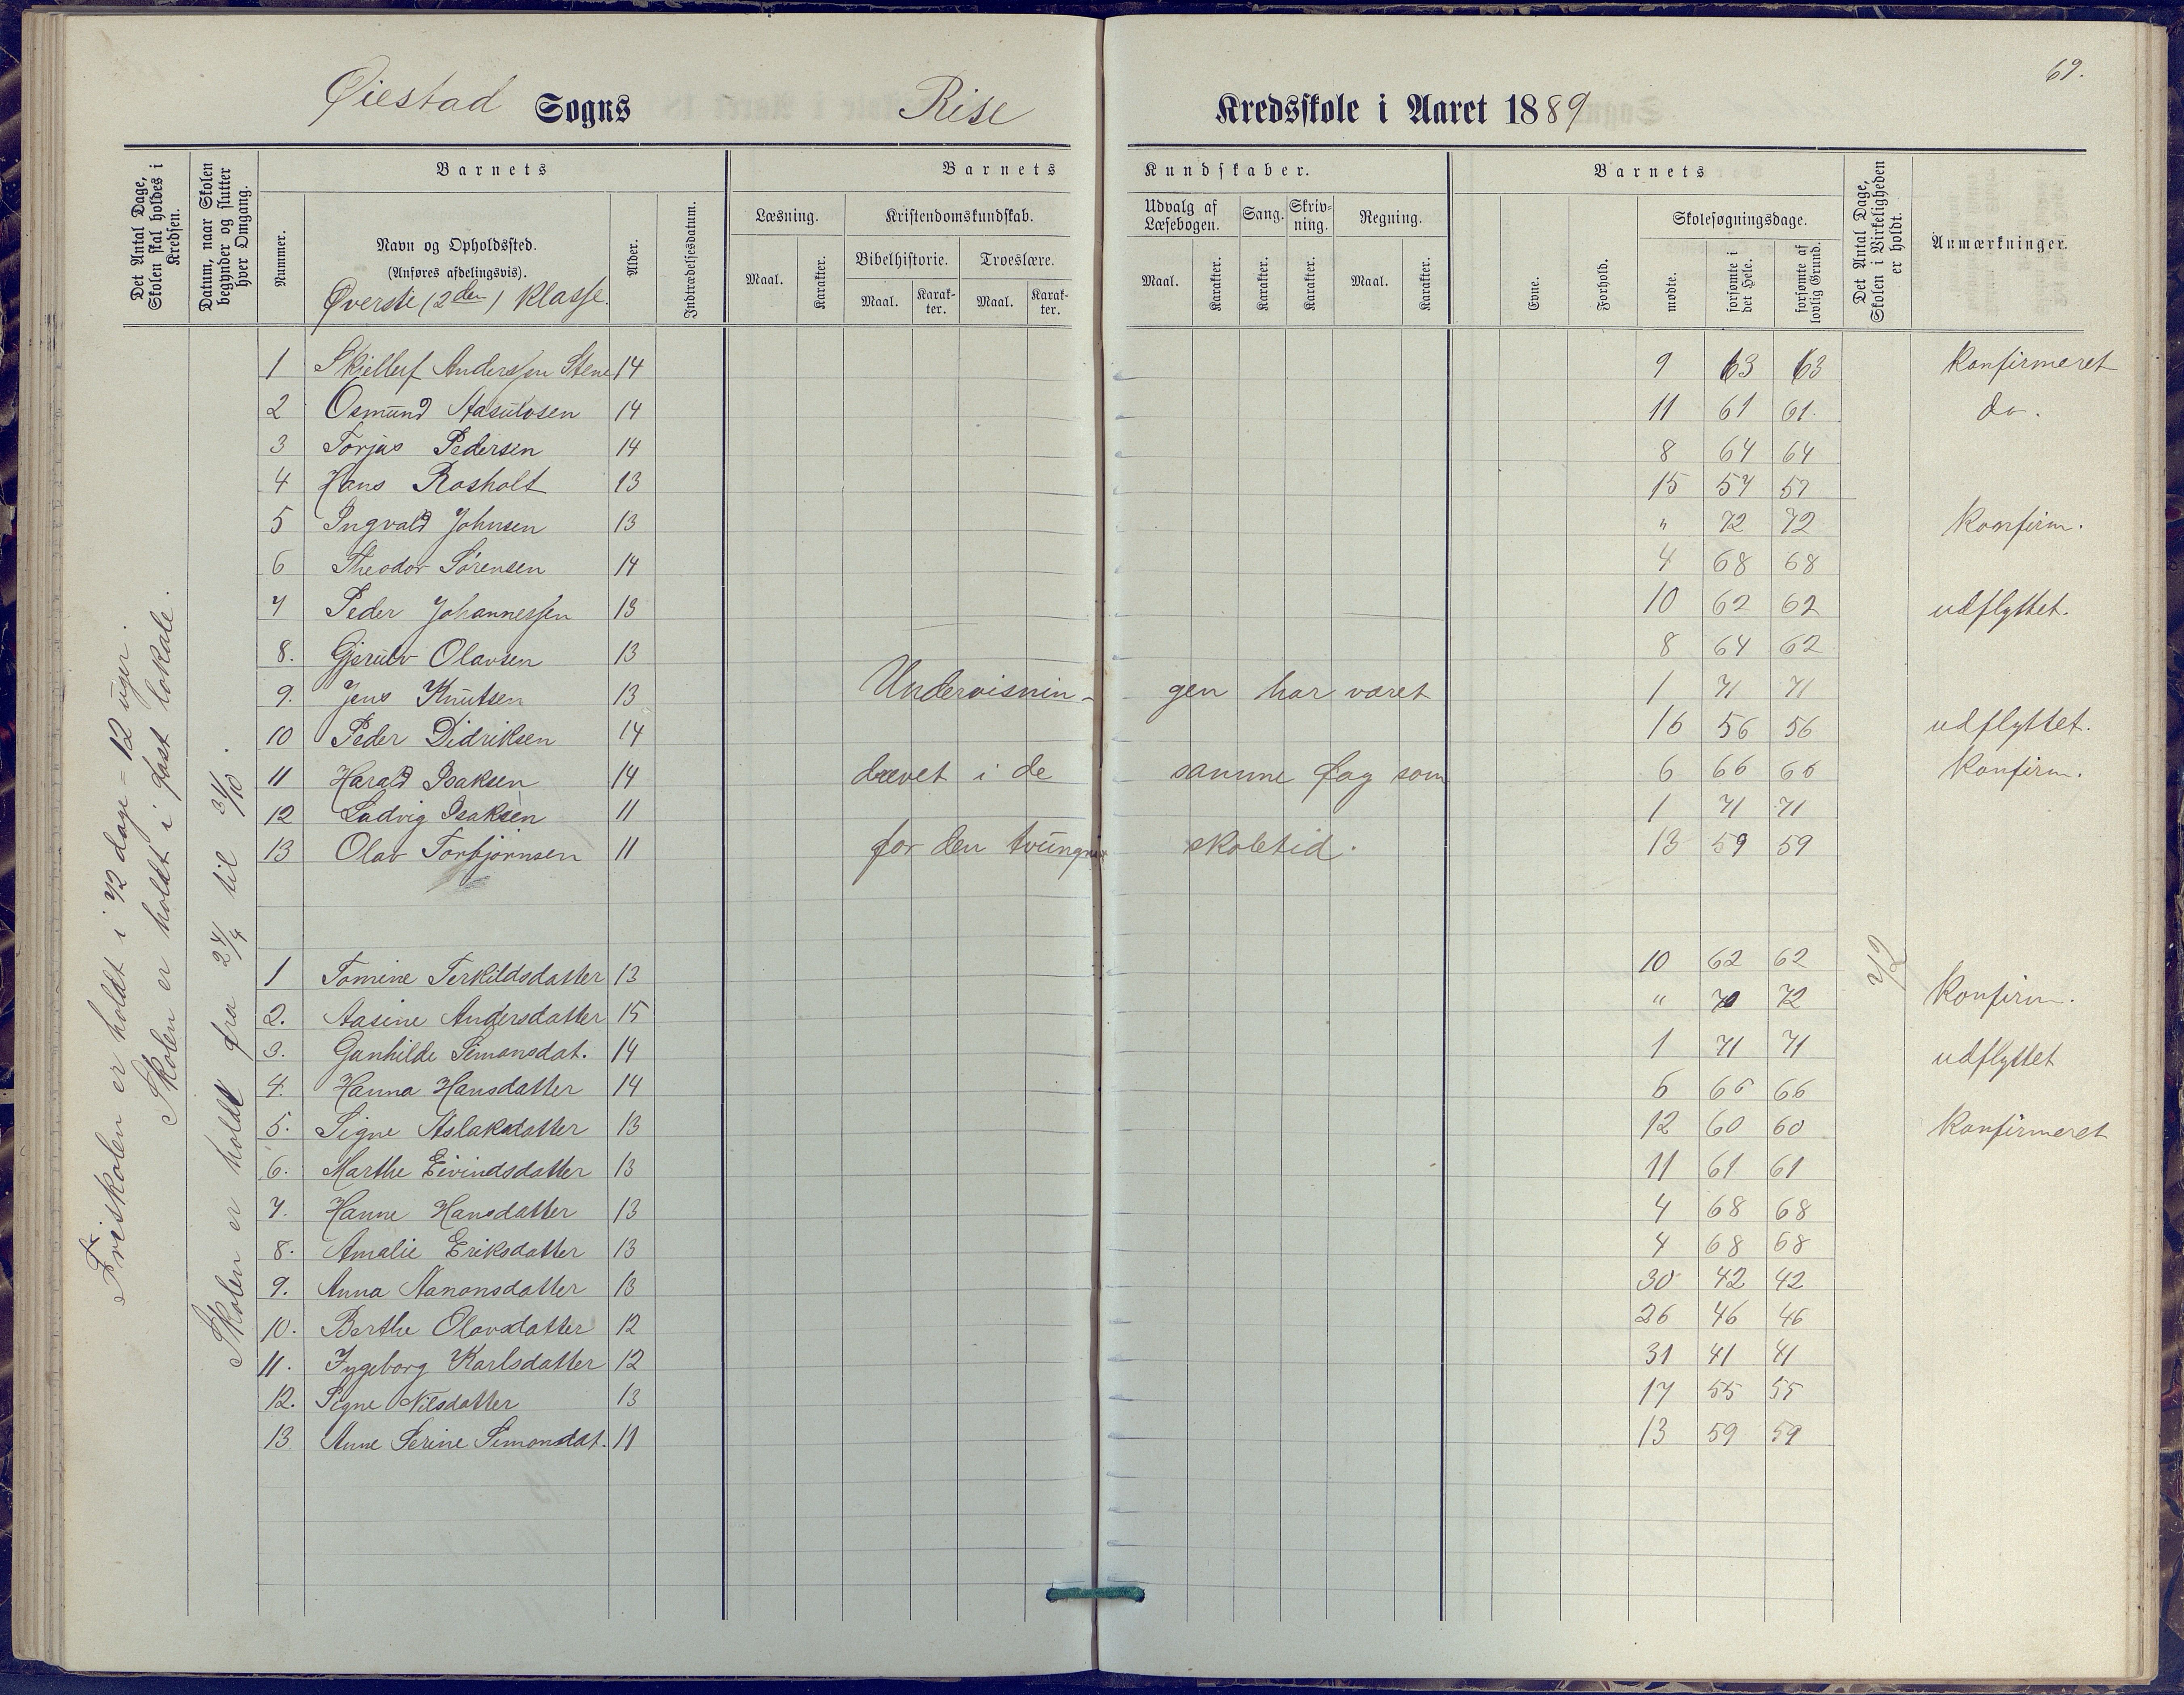 69.
Øiestad Sogns Rise Kredsskole i Aaret 1889
Det Antal Dage, Skolen skal holdes i Kredsen.
Datum, naar Skolen begynder og slutter hver Omgang.
Barnets
Nummer.
Navn og Opholdssted.
(Anføres afdelingsvis).
Øverste (2den) Klasse.
Alder.
Indtrædelsesdatum.
Barnets Kundskaber.
Læsning.
Maal.
Karakter.
Kristendomskundskab.
Bibelhistorie.
Maal.
Karakter.
Troeslære.
Maal.
Karakter.
Udvalg af Læsebogen.
Maal.
Karakter.
Sang.
Karakter.
Skrivning.
Karakter.
Regning.
Maal.
Karakter.
Barnets
Evne.
Forhold.
Skolesøgningsdage.
mødte.
forsømte i det Hele.
forsømte af lovlig Grund.
Det Antal Dage, Skolen i Virkeligheden er holdt.
Anmærkninger.
Friskolen er holdt i 72 dage = 12 uger.
Skolen er holdt i fast lokale.
Skolen er holdt fra 24/4 til 31/10.
1 Skjellef Anderssen Stene 14 9 63 63 Konfirmeret
2 Osmund Aasulvsen 14 11 61 61. do.
3 Torjus Pedersen 14 8 64 64
4 Hans Rosholt 13 15 57 57
5 Ingvald Johnsen 13 " 72 72 Konfirm.
6 Theodor Sørensen 14 4 68 68
7 Peder Johannessen 13 10 62 62 udflyttet.
8. Gjerulv Olavsen 13 8 64 62
9. Jens Knutsen 13 1 71 71
10 Peder Didriksen 14 16 56 56 udflyttet.
11 Harald Isaksen 14 6 66 66 Konfirm.
12 Ludvig Isaksen 11 1 71 71
13 Olav Torbjørnsen 11 13 59 59
Undervisnin- gen har været
drevet i de samme fag som
for den tvungne skoletid.
72
1 Tomine Terkildsdatter 13 10 62 62
2. Aasine Andersdatter 15 " 72 72 Konfirm.
3. Gunhilde Simonsdat. 14 1 71 71 udflyttet
4. Hanna Hansdatter 14 6 66 66
5. Signe Aslaksdatter 13 12 60 60 Konfirmeret
6. Marthe Eivindsdatter 13 11 61 61
7. Hanne Hansdatter 13 4 68 68
8. Amalie Eriksdatter 13 4 68 68
9. Anna Aanonsdatter 13 30 42 42
10. Berthe Olavsdatter 12 26 46 46
11. Ingeborg Karlsdatter 12 31 41 41
12. Signe Nilsdatter 13 17 55 55
13. Anne Serine Simonsdat. 11 13 59 59